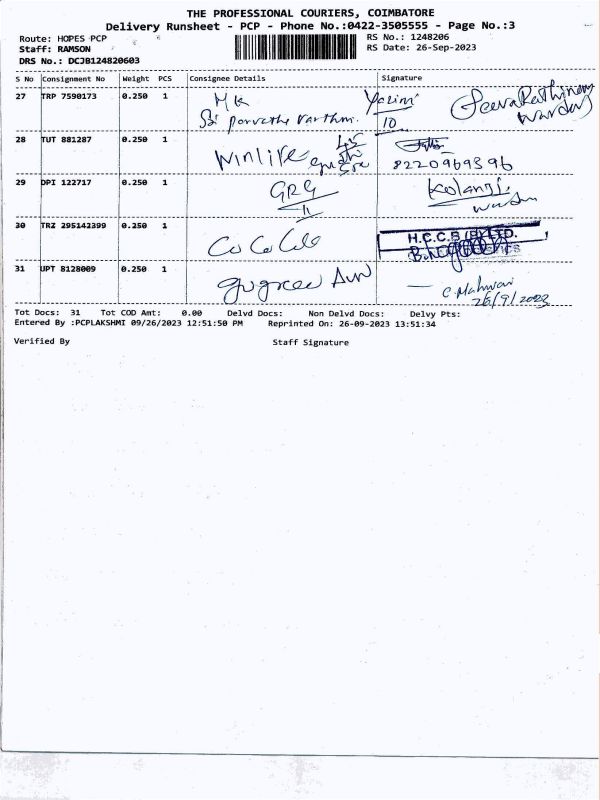 THE PROFESSIONAL COURIERS, COIMBATORE
Delivery Runsheet - PCP - Phone No.:0422-3505555 - Page No.:3
Route: HOPES PCP RS No.: 1248206
Staff: RAMSON RS Date: 26-Sep-2023
DRS No.: DCJB124820603
S No Consignment No Weight PCS Consignee Details Signature
27 TRP 7590173 0.250 1 M K
10
28 TUT 881287 0.250 1 Winlife 45 8220969396
29 DPI 122717 0.250 1 GRG Kolanji
11
30 TRZ 295142399 0.250 1 Co Ca Cola H.C.C.B (P) LTD.
31 UPT 8128009 0.250 1 26/9/2023
Tot Docs: 31 Tot COD Amt: 0.00 Delvd Docs: Non Delvd Docs: Delvy Pts:
Entered By :PCPLAKSHMI 09/26/2023 12:51:50 PM Reprinted On: 26-09-2023 13:51:34
Verified By Staff Signature